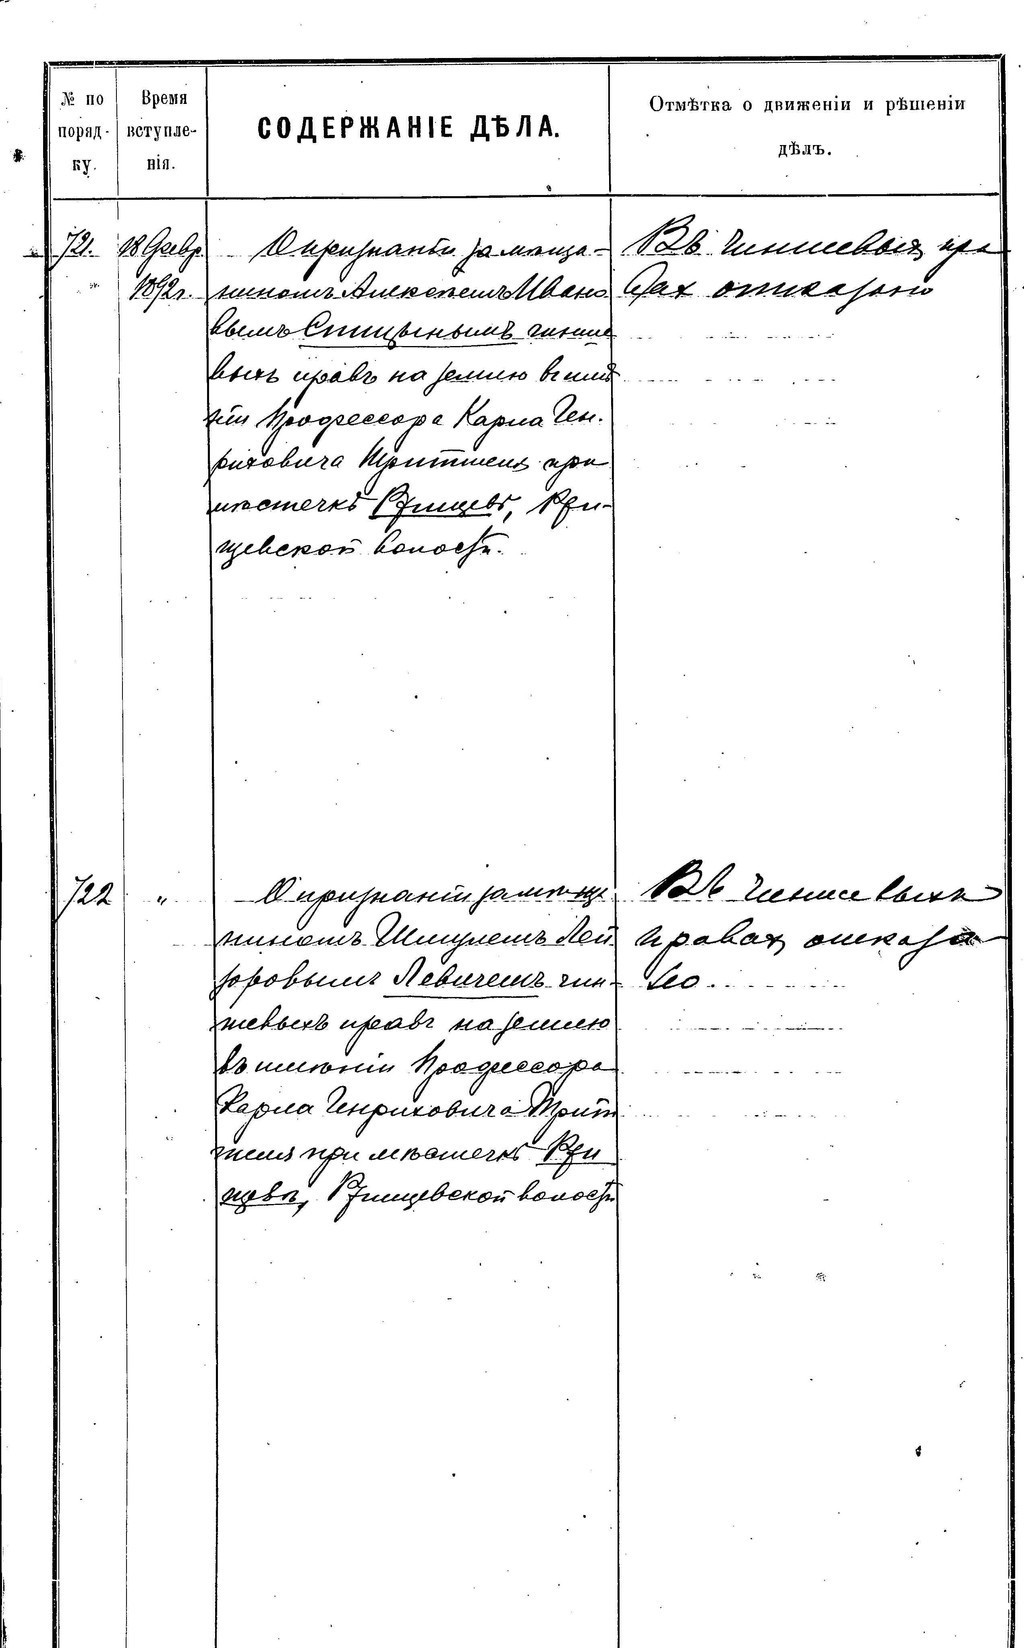 № по порядку.
Время вступленія.
СОДЕРЖАНІЕ ДѢЛА.
Отмѣтка о движеніи и рѣшеніи
дѣлъ.
721.
18 Февр.
1892 г.
О признаніи за мѣща-
ниномъ Алексѣемъ Ивано
вымъ Спицынымъ чинше
выхъ правъ на землю въ имѣ
ніи Профессора Карла Ген-
риховича Триттшеля при
мѣстечкѣ Ржищевѣ, Ржи-
щевской волости.
Въ чиншевых пра
вах отказано
722
"
О признаніи за мѣща
ниномъ Шмулемъ Лей
зоровымъ Левичемъ чин-
шевыхъ правъ на землю
въ имѣніи Профессора
Карла Генриховича Тритт
шеля при мѣстечкѣ Ржи
щевѣ, Ржищевской волости
Въ чиншевыхъ
правах отказа
но.